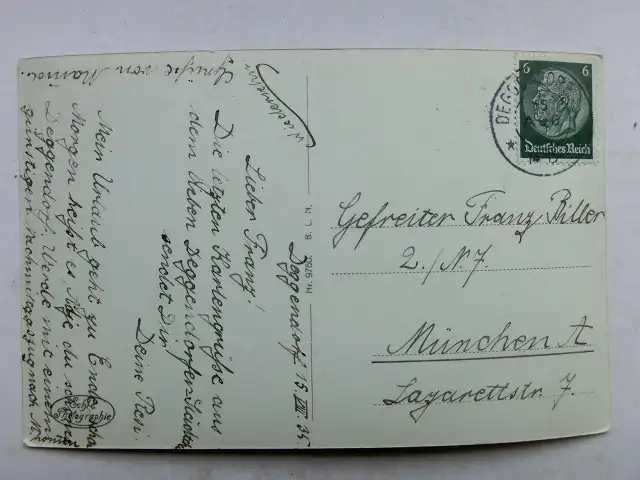 Deggendorf 15.VIII.35.
Lieber Franz!
Die letzten Kartengrüße aus
dem lieben Deggendorfer Städtchen
sendet Dir
Deine Resi.
Mein Urlaub geht zu Ende
Morgen heißt es, Ade du
Deggendorf. Werde mit einem
günstigen Nachmittagszug nach M.
kommen
Grüße von Mama.
Wiedersehn
Echte
Photographie
Nr. 9760
L. N.
6
6
Deutsches Reich
DEGG
Gefreiter Franz Biller
2./N.7.
München A
Lazarettstr. 7.